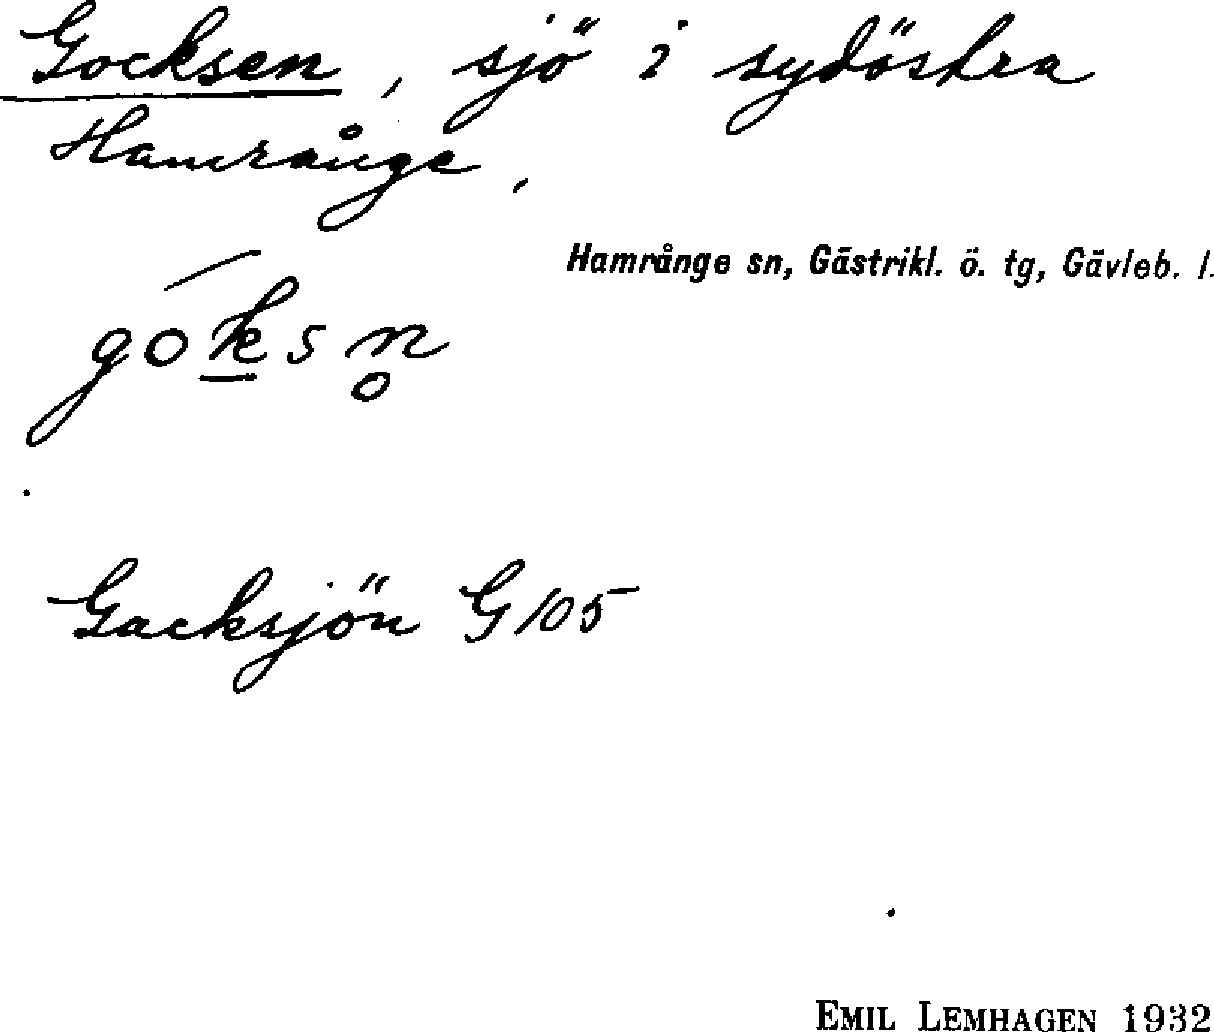 Gocksen, sjö i sydöstra
Hamrånge,
Hamrånge sn, Gästrikl. ö. tg, Gävleb. l.
gók̲sn̥
Gacksjön G 105
EMIL LEMHAGEN 1932